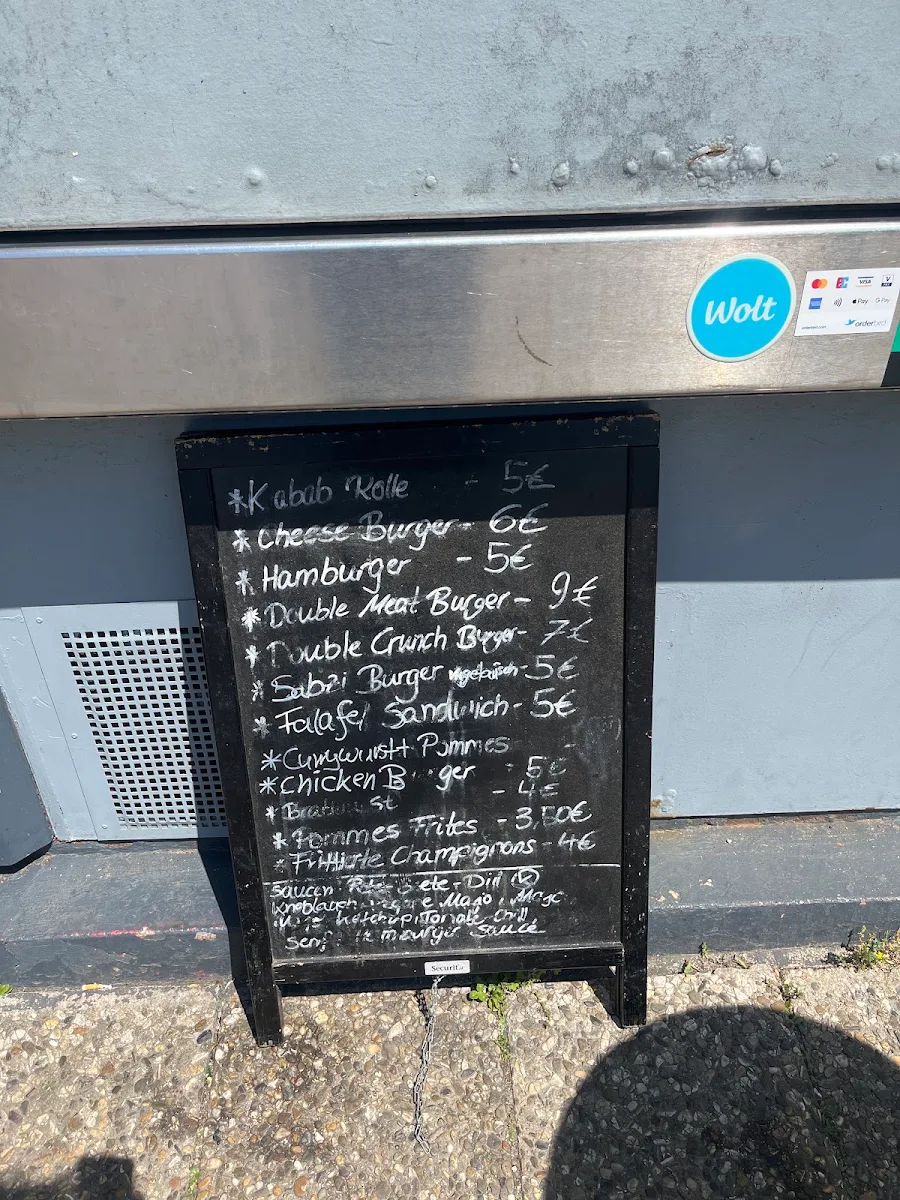 Wolt
VISA
Pay
G Pay
orderbird
*Kabab Rolle - 5€
*Cheese Burger - 6€
*Hamburger - 5€
*Double Meat Burger - 9€
*Double Crunch Burger - 7€
*Sabzi Burger vegetarisch - 5€
*Falafel Sandwich - 5€
*Currywurst+ Pommes -
*Chicken B ger - 5€
*Bratwurst - 4€
*Pommes Frites - 3,50€
*Frittierte Champignons - 4€
Saucen Dill
Knoblauch Mayo
Ketchup Chili
Senf Sauce
Securit